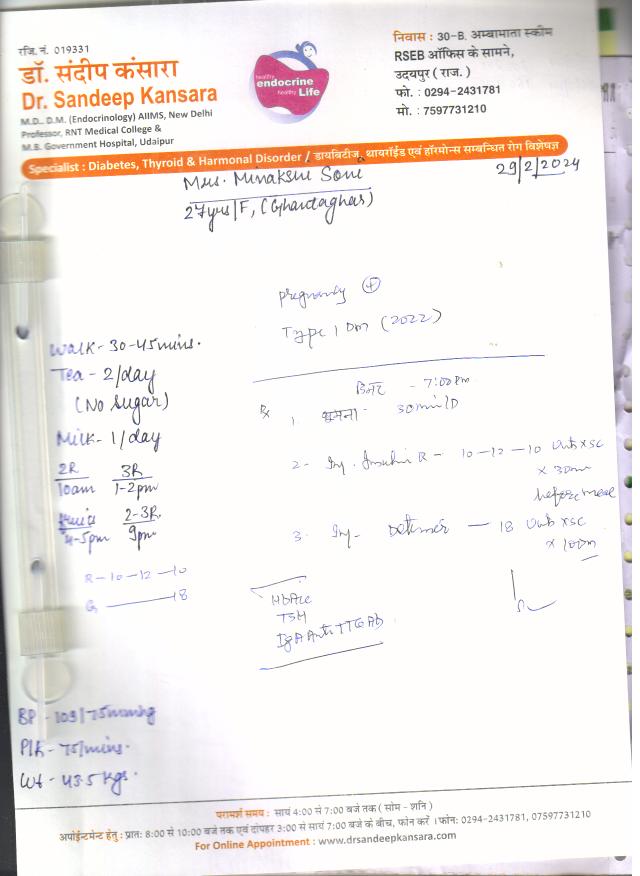 रजि. नं. 019331
डॉ. संदीप कंसारा
Dr. Sandeep Kansara
M.D., D.M. (Endocrinology) AIIMS, New Delhi
Professor, RNT Medical College &
M.B. Government Hospital, Udaipur
healthy
endocrine
healthy Life
निवास : 30-B, अम्बामाता स्कीम
RSEB ऑफिस के सामने,
उदयपुर ( राज. )
फो. : 0294-2431781
मो. : 7597731210
Specialist : Diabetes, Thyroid & Harmonal Disorder / डायबिटीज, थायरॉईड एवं हॉरमोन्स सम्बन्धित रोग विशेषज्ञ
29/2/2024
Mrs. Minakshi Soni
27yrs/F, (Ghardaghar)
pregnancy +
Type 1 DM (2022)
Walk - 30-45mins.
Tea - 2/day
(No Sugar)
Milk - 1/day
2R 3R
10am 1-2pm
2-3R
4-5pm 9pm
R-10-12-10
G 18
डिनर - 7:00 pm
Rx 1. घूमना - 30min/D
2. Inj. Insulin R - 10-12-10 Units x SC
x 30m
before meal
3. Inj. - 18 Units x SC
x 10pm
HbA1c
TSH
IgA Anti TTG Ab
BP - 103/75mmhg
75/mins.
Wt - 43.5 Kgs.
परामर्श समय : सायं 4:00 से 7:00 बजे तक ( सोम - शनि )
अपॉईन्टमेन्ट हेतु : प्रात: 8:00 से 10:00 बजे तक एवं दोपहर 3:00 से सायं 7:00 बजे के बीच, फोन करें । फोन: 0294-2431781, 07597731210
For Online Appointment : www.drsandeepkansara.com